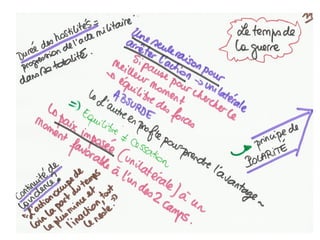 Le temps de
la guerre
Durée des hostilités =
progression de l'acte militaire
dans sa totalité.
Une seule raison pour
arrêter l'action -> unilatérale
Si pause pour chercher le
meilleur moment
-> équilibre des forces
ABSURDE
↳ L'autre en profite pour prendre l'avantage ~
=> Equilibre ≠ Cessation
La paix imposée (unilatérale) à un
moment favorable à l'un des 2 camps.
principe de
POLARITÉ
Continuité de
la violence:
"L'action occupe de
loin la part du temps
la plus mince et
l'inaction, tout
le reste."